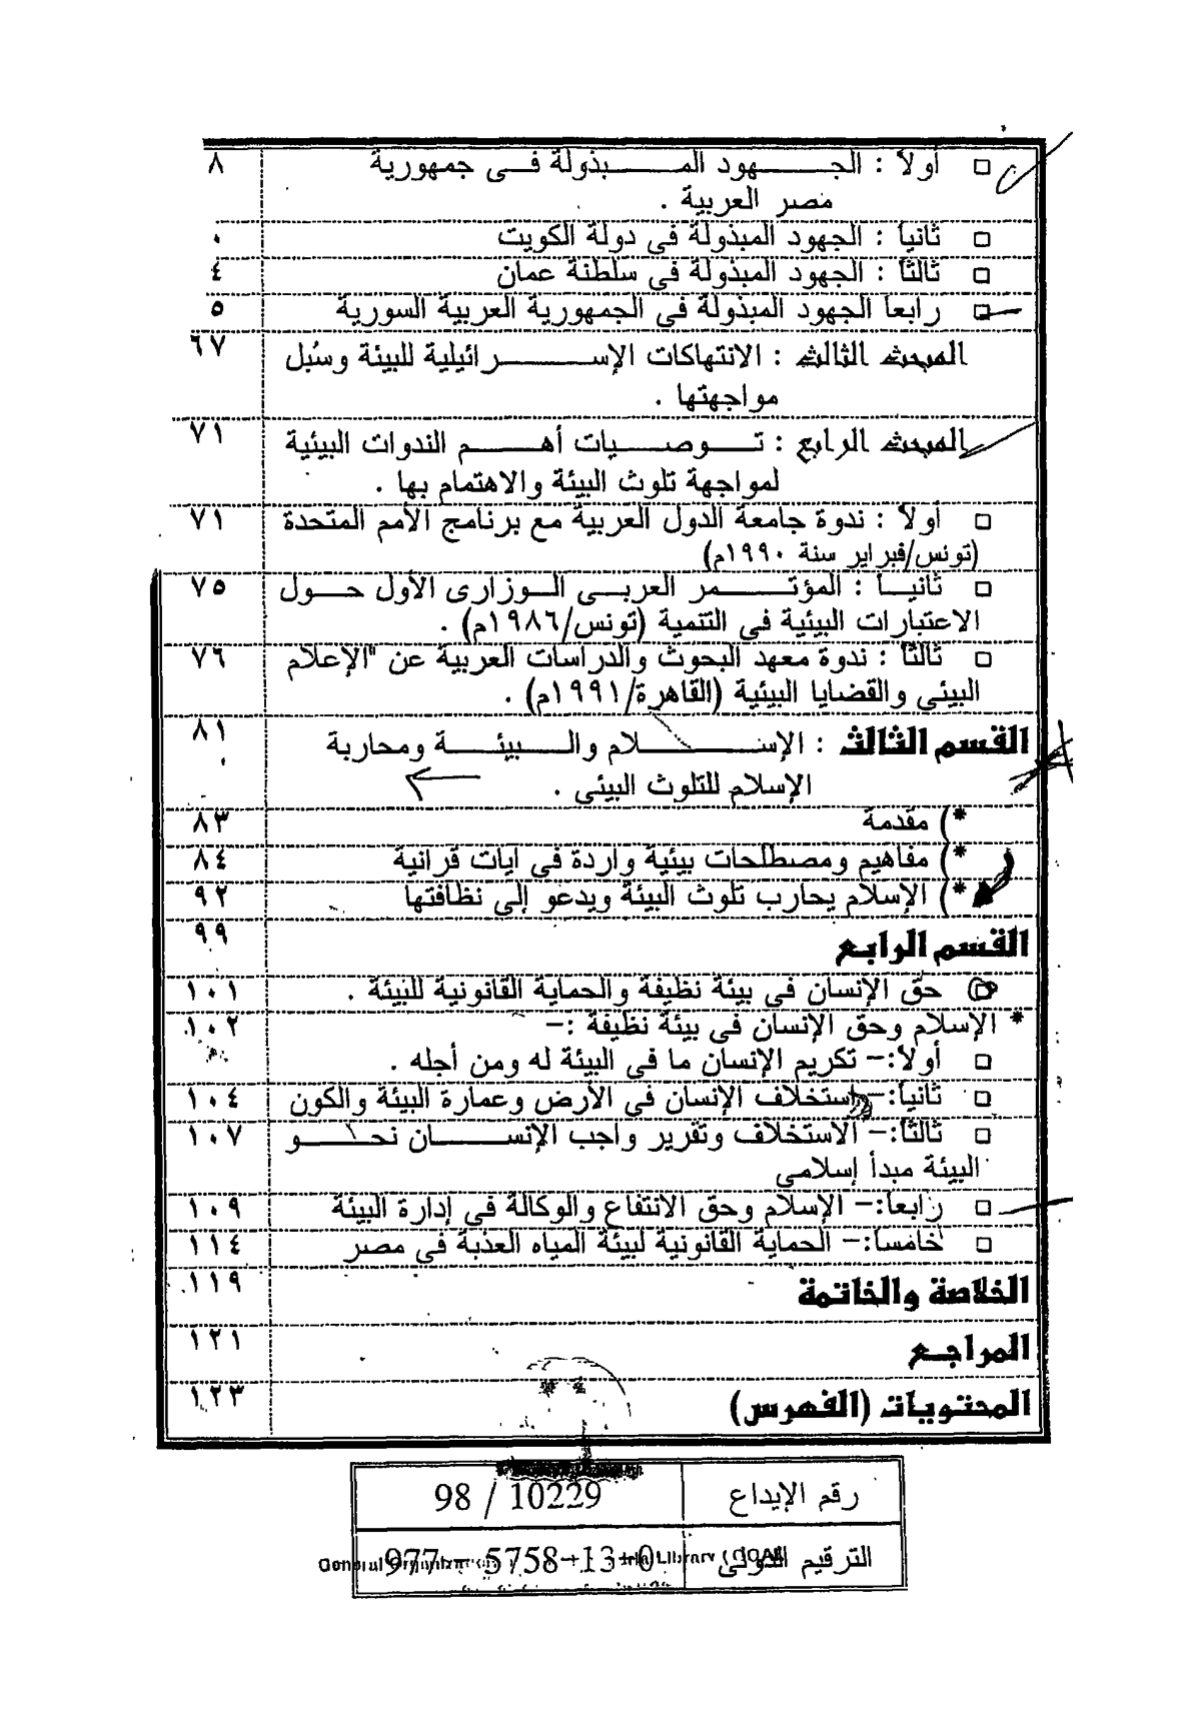 □ أولاً : الجهود المبذولة فى جمهورية ٨
مصر العربية .
□ ثانياً : الجهود المبذولة فى دولة الكويت ٠
□ ثالثاً : الجهود المبذولة فى سلطنة عمان ٤
□ رابعاً الجهود المبذولة فى الجمهورية العربية السورية ٥
المبحث الثالث : الانتهاكات الإسرائيلية للبيئة وسُبل ٦٧
مواجهتها .
المبحث الرابع : توصيات أهم الندوات البيئية ٧١
لمواجهة تلوث البيئة والاهتمام بها .
□ أولاً : ندوة جامعة الدول العربية مع برنامج الأمم المتحدة ٧١
(تونس/فبراير سنة ١٩٩٠م)
□ ثانياً : المؤتمر العربى الوزارى الأول حول ٧٥
الاعتبارات البيئية فى التنمية (تونس/١٩٨٦م) .
□ ثالثاً : ندوة معهد البحوث والدراسات العربية عن "الإعلام ٧٦
البيئى والقضايا البيئية (القاهرة/١٩٩١م) .
القسم الثالث : الإسلام والبيئة ومحاربة ٨١
الإسلام للتلوث البيئى .
*) مقدمة ٨٣
*) مفاهيم ومصطلحات بيئية واردة فى آيات قرآنية ٨٤
*) الإسلام يحارب تلوث البيئة ويدعو إلى نظافتها ٩٢
القسم الرابع ٩٩
حق الإنسان فى بيئة نظيفة والحماية القانونية للبيئة . ١٠١
* الإسلام وحق الإنسان فى بيئة نظيفة :– ١٠٢
□ أولاً:– تكريم الإنسان ما فى البيئة له ومن أجله .
□ ثانياً:– استخلاف الإنسان فى الأرض وعمارة البيئة والكون ١٠٤
□ ثالثاً:– الاستخلاف وتقرير واجب الإنسان نحو ١٠٧
البيئة مبدأ إسلامى
□ رابعاً:– الإسلام وحق الانتفاع والوكالة فى إدارة البيئة ١٠٩
□ خامساً:– الحماية القانونية لبيئة المياه العذبة فى مصر ١١٤
الخلاصة والخاتمة ١١٩
المراجع ١٢١
المحتويات (الفهرس) ١٢٣
رقم الإيداع 98 / 10229
الترقيم الدولى 977 – 5758-13-0